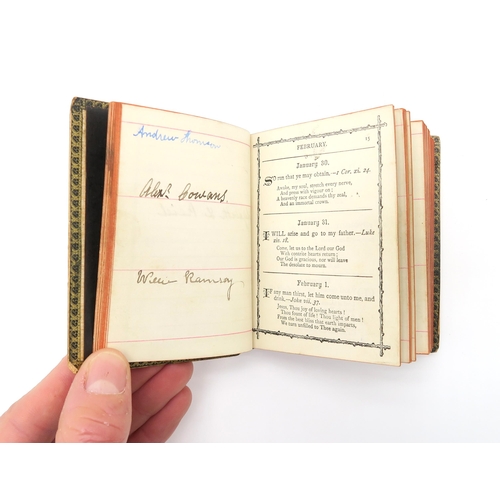 Andrew Thomson
Alexr. Cowans.
Will Ramsay
15
FEBRUARY.
January 30.
So run that ye may obtain.—1 Cor. ix. 24.
Awake, my soul, stretch every nerve,
And press with vigour on;
A heavenly race demands thy zeal,
And an immortal crown.
January 31.
I WILL arise and go to my father.—Luke
xv. 18.
Come, let us to the Lord our God
With contrite hearts return;
Our God is gracious, nor will leave
The desolate to mourn.
February 1.
If any man thirst, let him come unto me, and
drink.—John vii. 37.
Jesus, Thou joy of loving hearts!
Thou fount of life! Thou light of men!
From the best bliss that earth imparts,
We turn unfilled to Thee again.